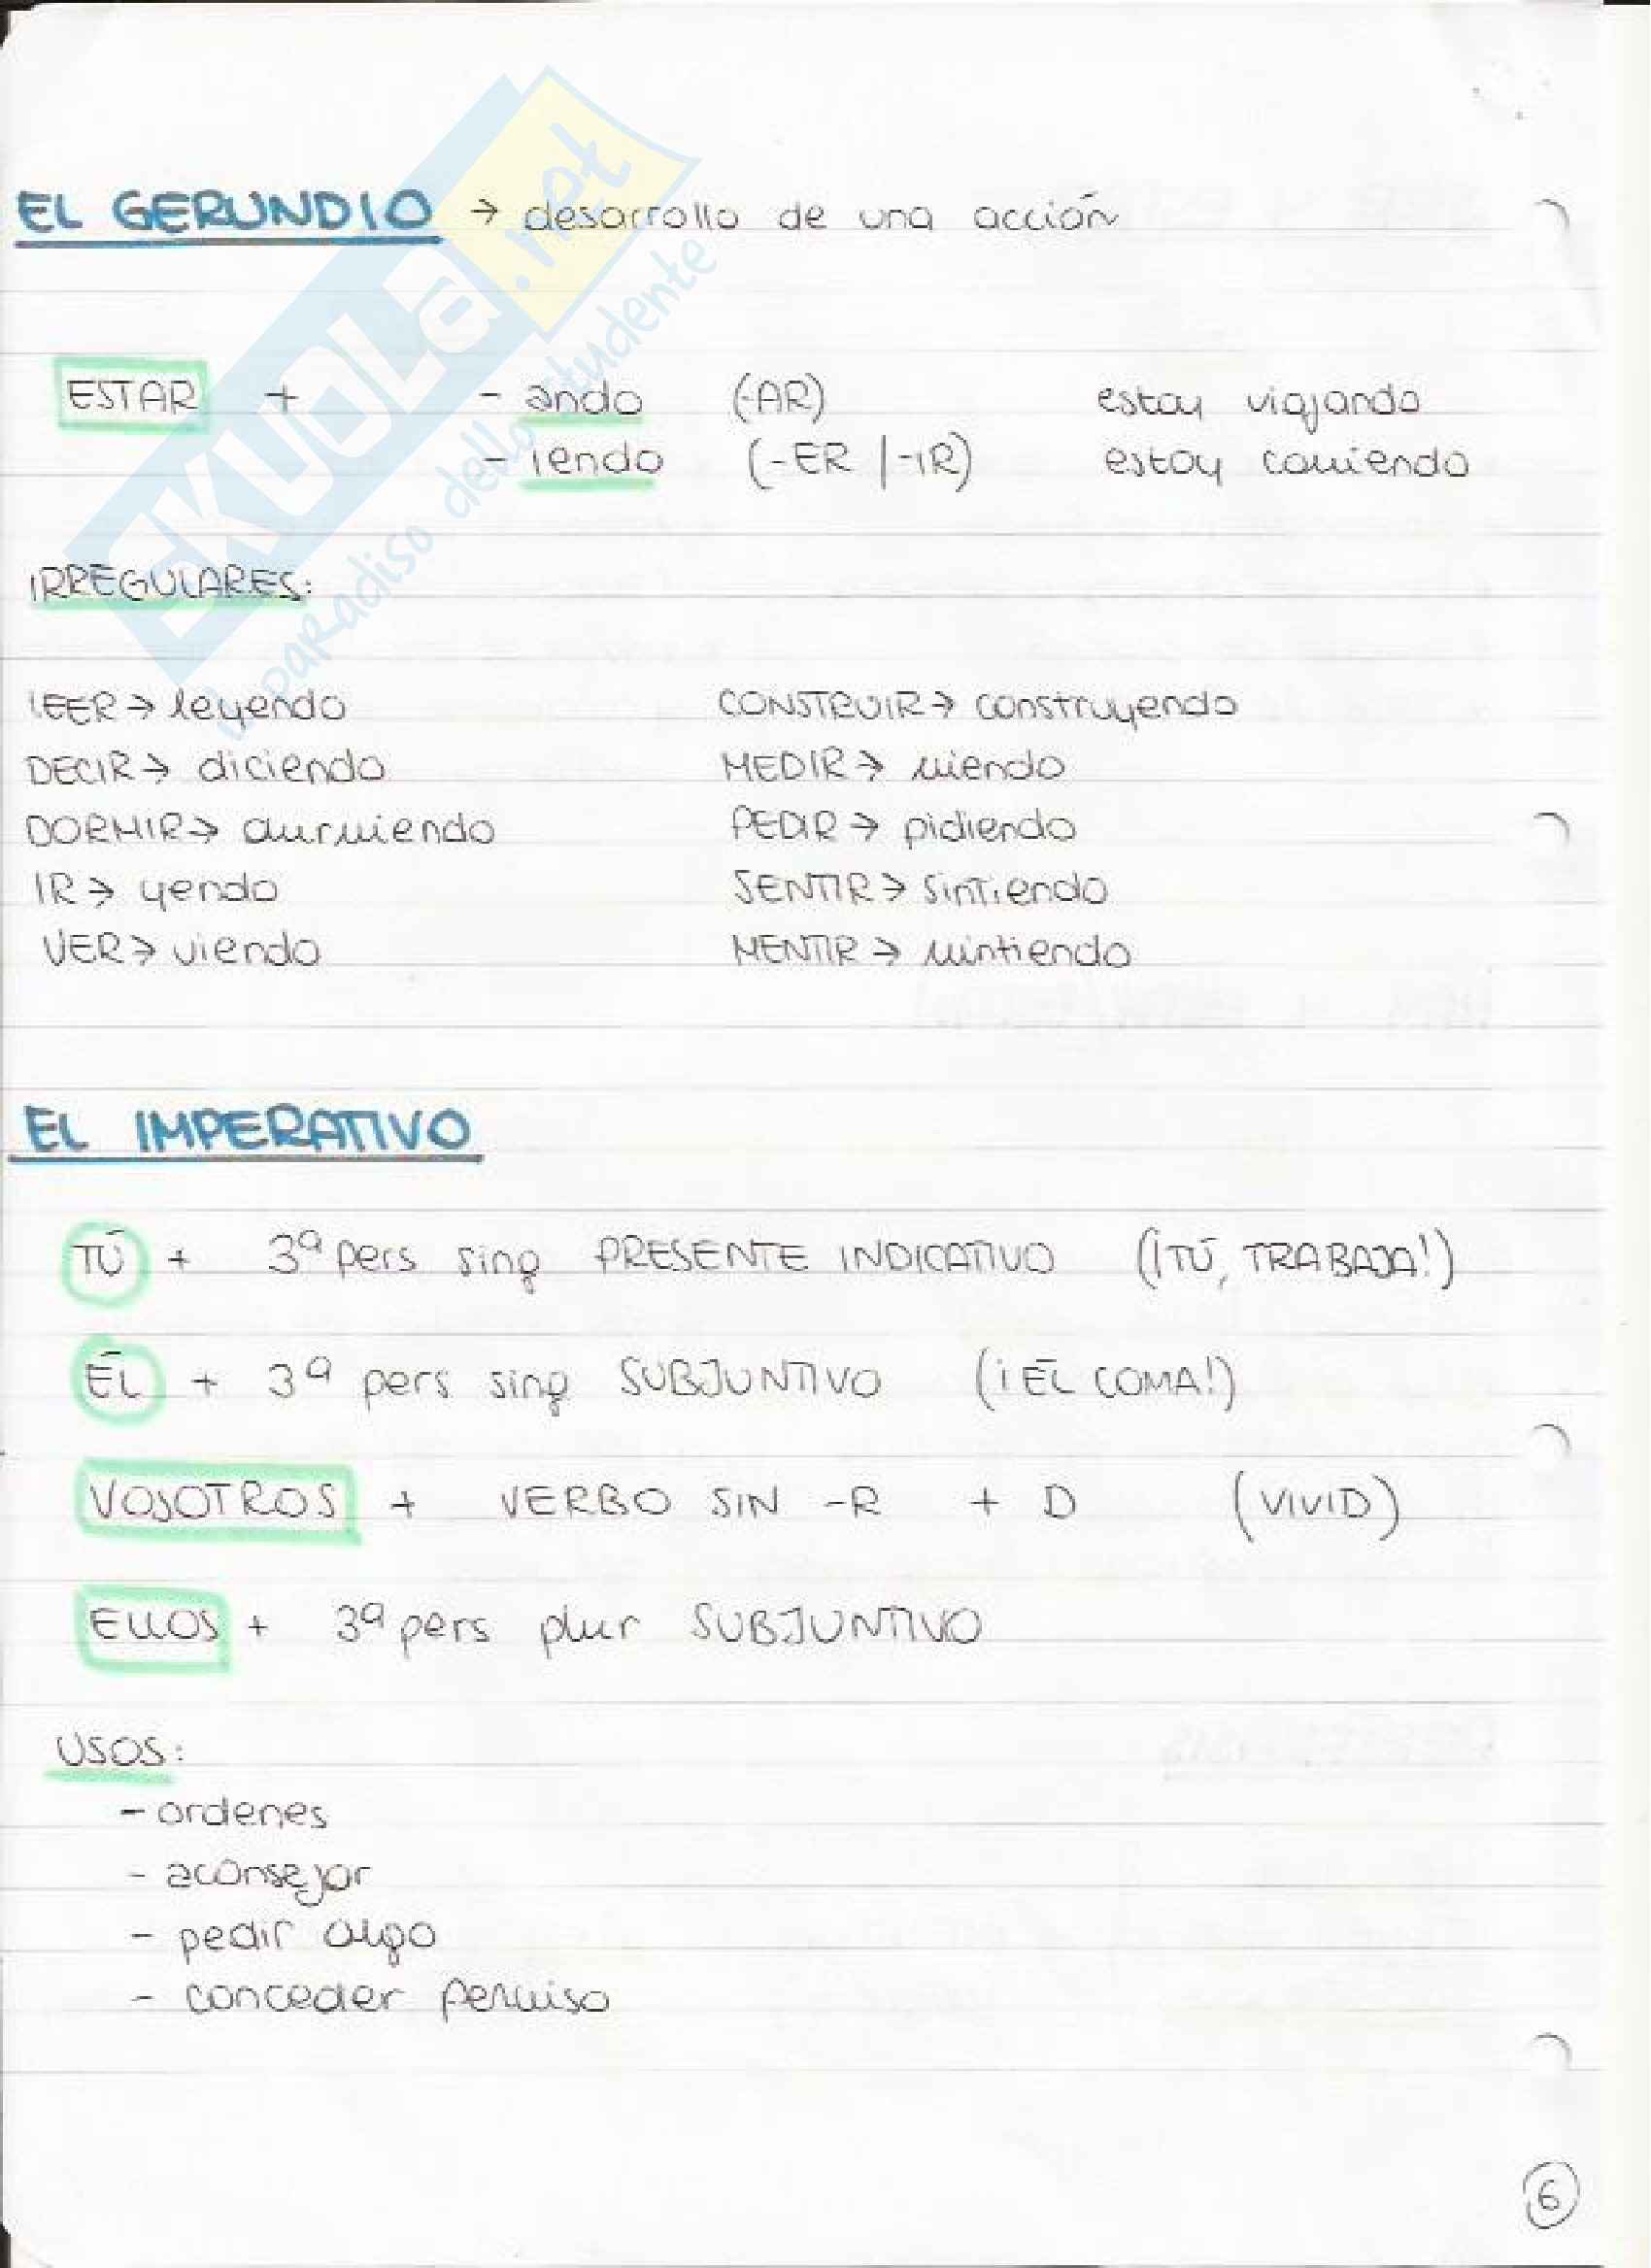 SKUOLA.net
il paradiso dello studente
EL GERUNDIO → desarrollo de una acción
ESTAR + - ando (-AR) estoy viajando
- iendo (-ER / -IR) estoy comiendo
IRREGULARES:
LEER → leyendo CONSTRUIR → construyendo
DECIR → diciendo MEDIR → miendo
DORMIR → durmiendo PEDIR → pidiendo
IR → yendo SENTIR → sintiendo
VER → viendo MENTIR → mintiendo
EL IMPERATIVO
TÚ + 3ª pers sing PRESENTE INDICATIVO (¡TÚ, TRABAJA!)
ÉL + 3ª pers sing SUBJUNTIVO (¡ÉL COMA!)
VOSOTROS + VERBO SIN -R + D (VIVID)
ELLOS + 3ª pers plur SUBJUNTIVO
USOS:
- ordenes
- aconsejar
- pedir algo
- conceder permiso
6